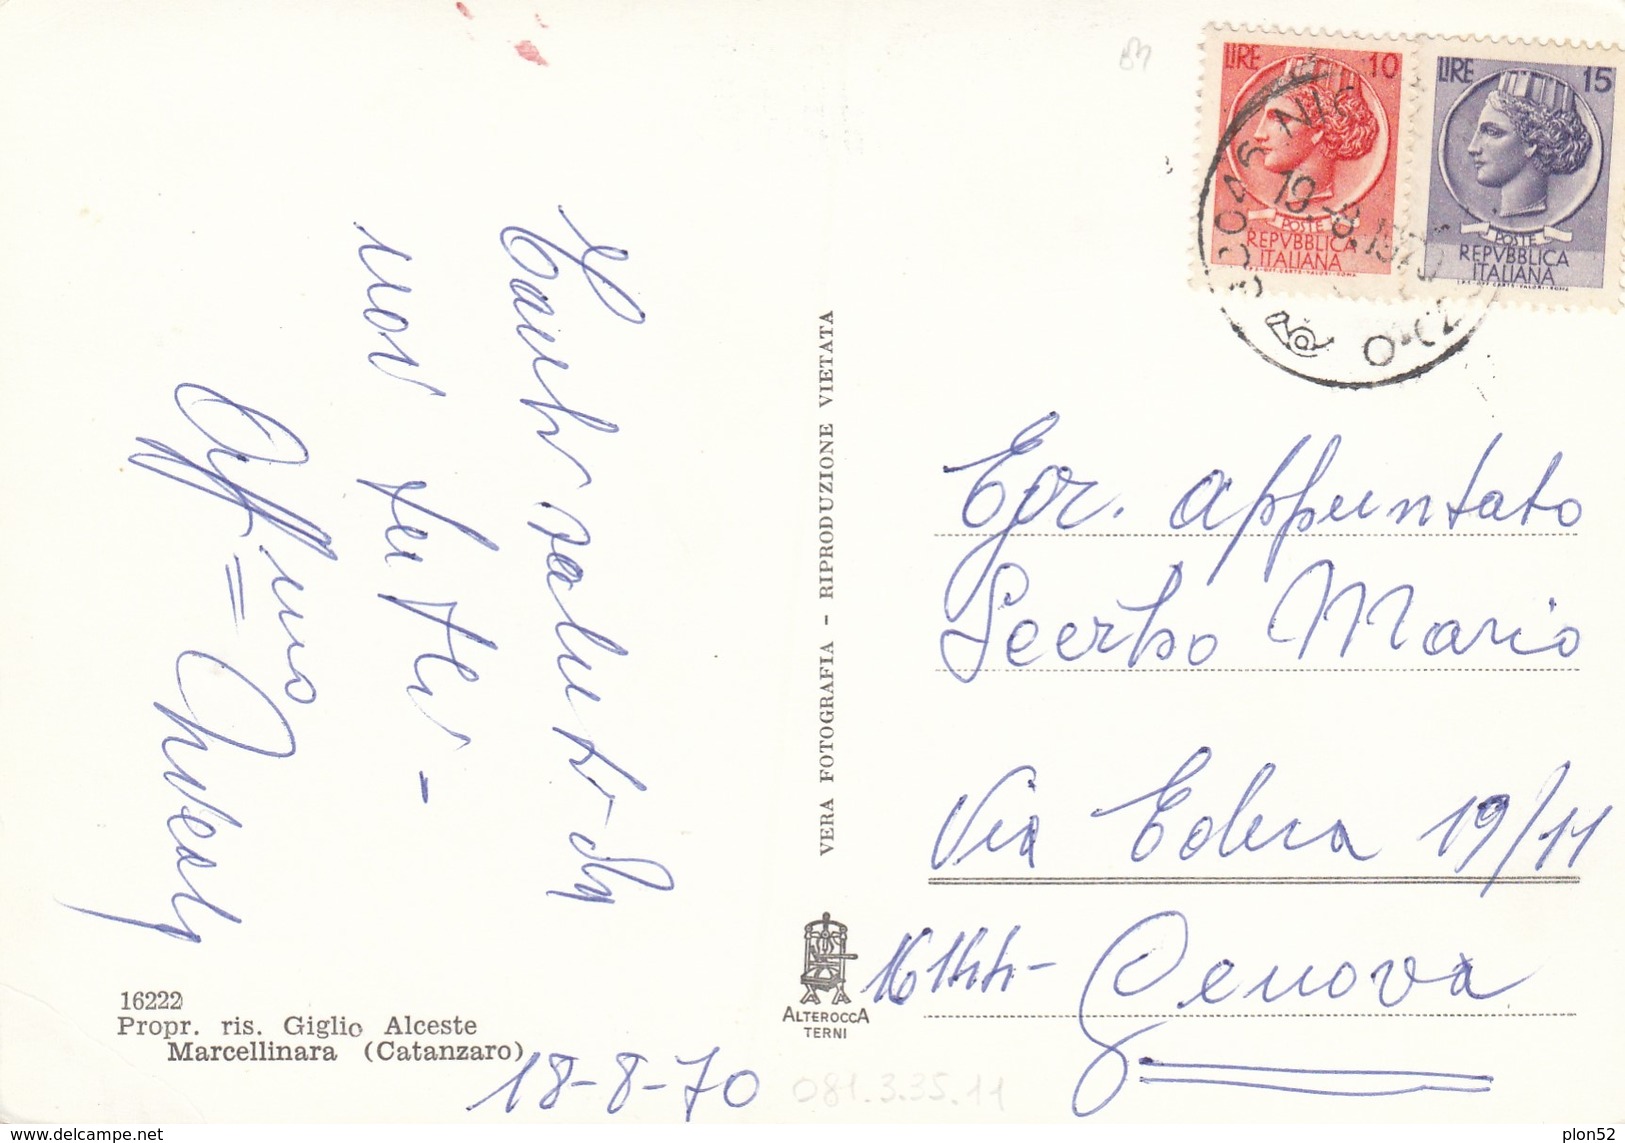 Cari saluti da
noi tutti -
Aff=mo
16222
Propr. ris. Giglio Alceste
Marcellinara (Catanzaro)
18-8-70
VERA FOTOGRAFIA - RIPRODUZIONE VIETATA
ALTEROCCA
TERNI
LIRE 10
POSTE
REPVBBLICA
ITALIANA
LIRE 15
POSTE
REPVBBLICA
ITALIANA
19.-8.1970
Egr. Appuntato
Scerbo Mario
Via Edera 19/11
16144- Genova
081.3.35.11
http://www.delcampe.net
plon52